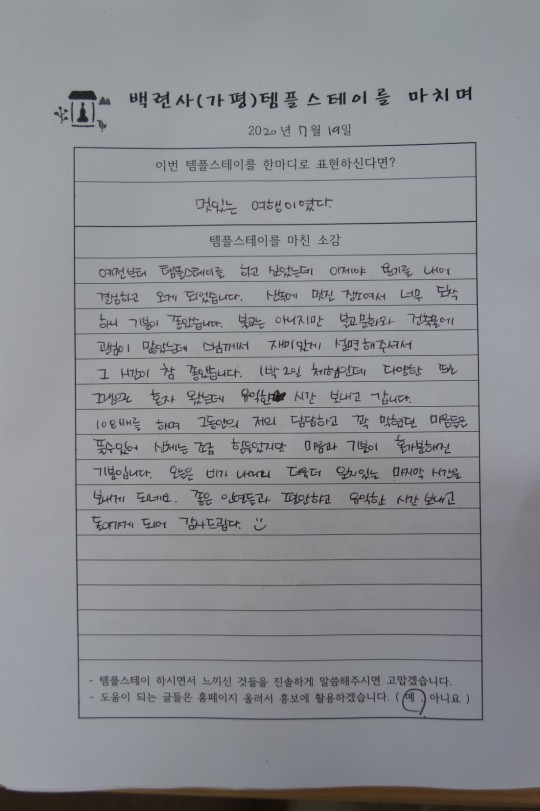 백련사(가평)템플스테이를 마치며
2020년 7월 19일
이번 템플스테이를 한마디로 표현하신다면?
멋있는 여행이였다.
템플스테이를 마친 소감
예전부터 템플스테이를 하고 싶었는데 이제야 용기를 내어
결심하고 오게 되었습니다. 산속에 멋진 장소여서 너무 도착
하니 기분이 좋았습니다. 불교는 아니지만 불교문화와 건축물에
관심이 많았는데 스님께서 재미있게 설명해주셔서
그 시간이 참 좋았습니다. 1박2일 체험인데 다양한
혼자 왔는데 유익한 시간 보내고 갑니다.
108배를 하며 그동안의 저의 답답하고 꽉 막혔던 마음들은
풀수있어 신체는 조금 힘들었지만 마음과 기분이 홀가분해진
기분입니다. 오늘은 비가 내려서 더욱더 운치있는 마지막 시간을
보내게 되네요. 좋은 인연들과 편안하고 유익한 시간 보내고
돌아가게 되어 감사드립다. ☺
- 템플스테이 하시면서 느끼신 것들을 진솔하게 말씀해주시면 고맙겠습니다.
- 도움이 되는 글들은 홈페이지 올려서 홍보에 활용하겠습니다. ( 예 , 아니요 )